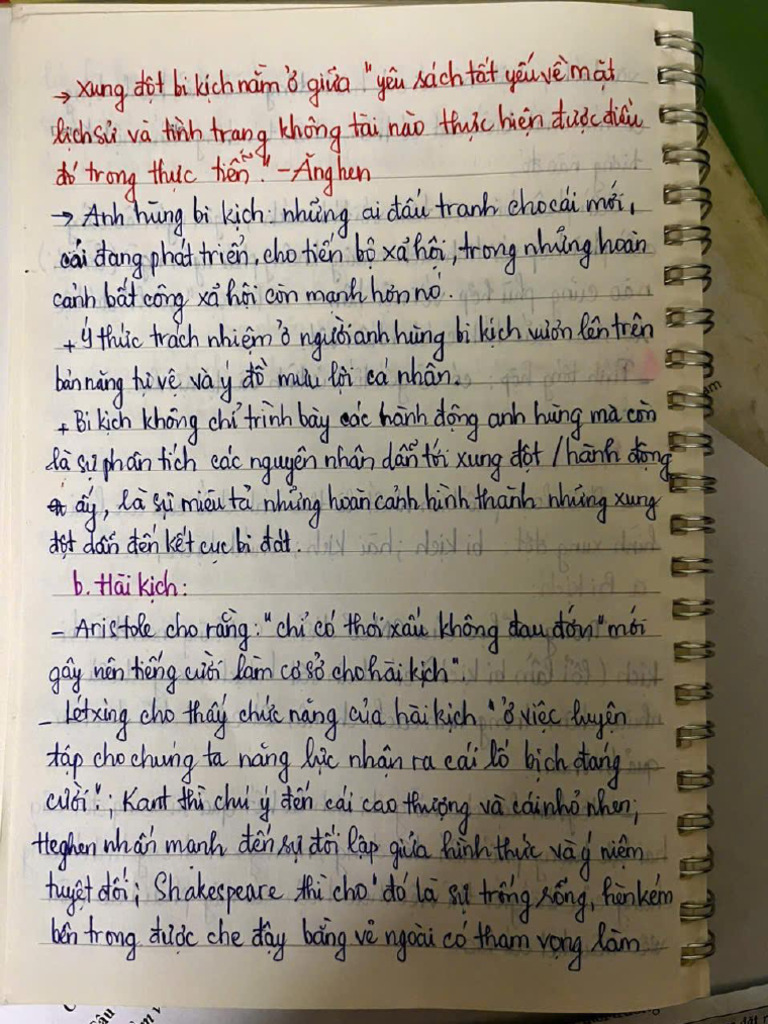 → Xung đột bi kịch nằm ở giữa "yêu sách tất yếu về mặt
lịch sử và tình trạng không tài nào thực hiện được điều
đó trong thực tiễn." - Ăng hen
→ Anh hùng bi kịch: những ai đấu tranh cho cái mới,
cái đang phát triển, cho tiến bộ xã hội, trong những hoàn
cảnh bất công xã hội còn mạnh hơn nó.
+ Ý thức trách nhiệm ở người anh hùng bi kịch vươn lên trên
bản năng tự vệ và ý đồ mưu lợi cá nhân.
+ Bi kịch không chỉ trình bày các hành động anh hùng mà còn
là sự phân tích các nguyên nhân dẫn tới xung đột / hành động
ấy, là sự miêu tả những hoàn cảnh hình thành những xung
đột dẫn đến kết cục bi đát.
b. Hài kịch:
- Aristole cho rằng: "chỉ có thói xấu không đau đớn "mới
gây nên tiếng cười làm cơ sở cho hài kịch".
- Létxing cho thấy chức năng của hài kịch "ở việc luyện
tập cho chúng ta năng lực nhận ra cái lố bịch đáng
cười"; Kant thì chú ý đến cái cao thượng và cái nhỏ nhen;
Heghen nhấn mạnh đến sự đối lập giữa hình thức và ý niệm
tuyệt đối; Shakespeare thì cho "đó là sự trống rỗng, hèn kém
bên trong được che đậy bằng vẻ ngoài có tham vọng làm